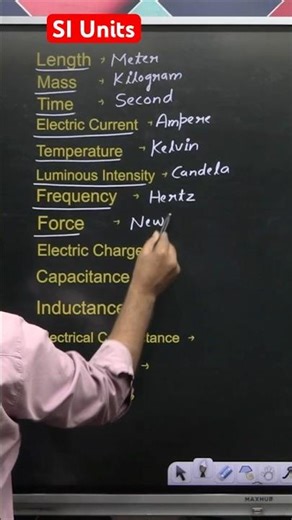 SI Units
Length → Meter
Mass → Kilogram
Time → Second
Electric Current → Ampere
Temperature → Kelvin
Luminous Intensity → Candela
Frequency → Hertz
Force → New
Electric Charge
Capacitance
Inductance
→
→
MAXHUB